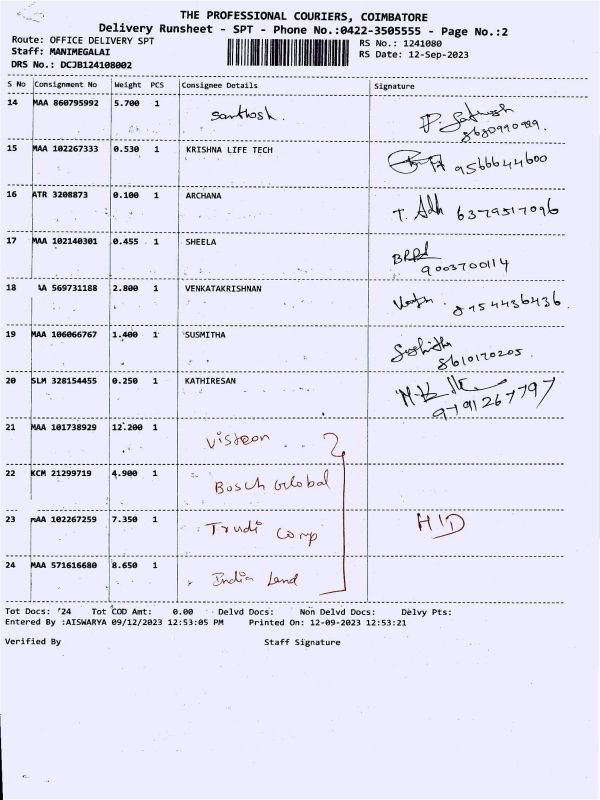 THE PROFESSIONAL COURIERS, COIMBATORE
Delivery Runsheet - SPT - Phone No.:0422-3505555 - Page No.:2
Route: OFFICE DELIVERY SPT RS No.: 1241080
Staff: MANIMEGALAI RS Date: 12-Sep-2023
DRS No.: DCJB124108002
S No Consignment No Weight PCS Consignee Details Signature
14 MAA 860795992 5.700 1 Santhosh. P. Sathosh
8680990989.
15 MAA 102267333 0.530 1 KRISHNA LIFE TECH 9566644600
16 ATR 3208873 0.100 1 ARCHANA T. Adh 6379517096
17 MAA 102140301 0.455 1 SHEELA
9003700114
18 AA 569731188 2.800 1 VENKATAKRISHNAN 8754436436.
19 MAA 106066767 1.400 1 SUSMITHA Sushitha
8610170205.
20 SLM 328154455 0.250 1 KATHIRESAN
9791267797
21 MAA 101738929 12.200 1 Visteon
22 KCM 21299719 4.900 1 Bosch Global
23 MAA 102267259 7.350 1 Trudi Comp HID
24 MAA 571616680 8.650 1 India Land
Tot Docs: '24 Tot COD Amt: 0.00 Delvd Docs: Non Delvd Docs: Delvy Pts:
Entered By :AISWARYA 09/12/2023 12:53:05 PM Printed On: 12-09-2023 12:53:21
Verified By Staff Signature